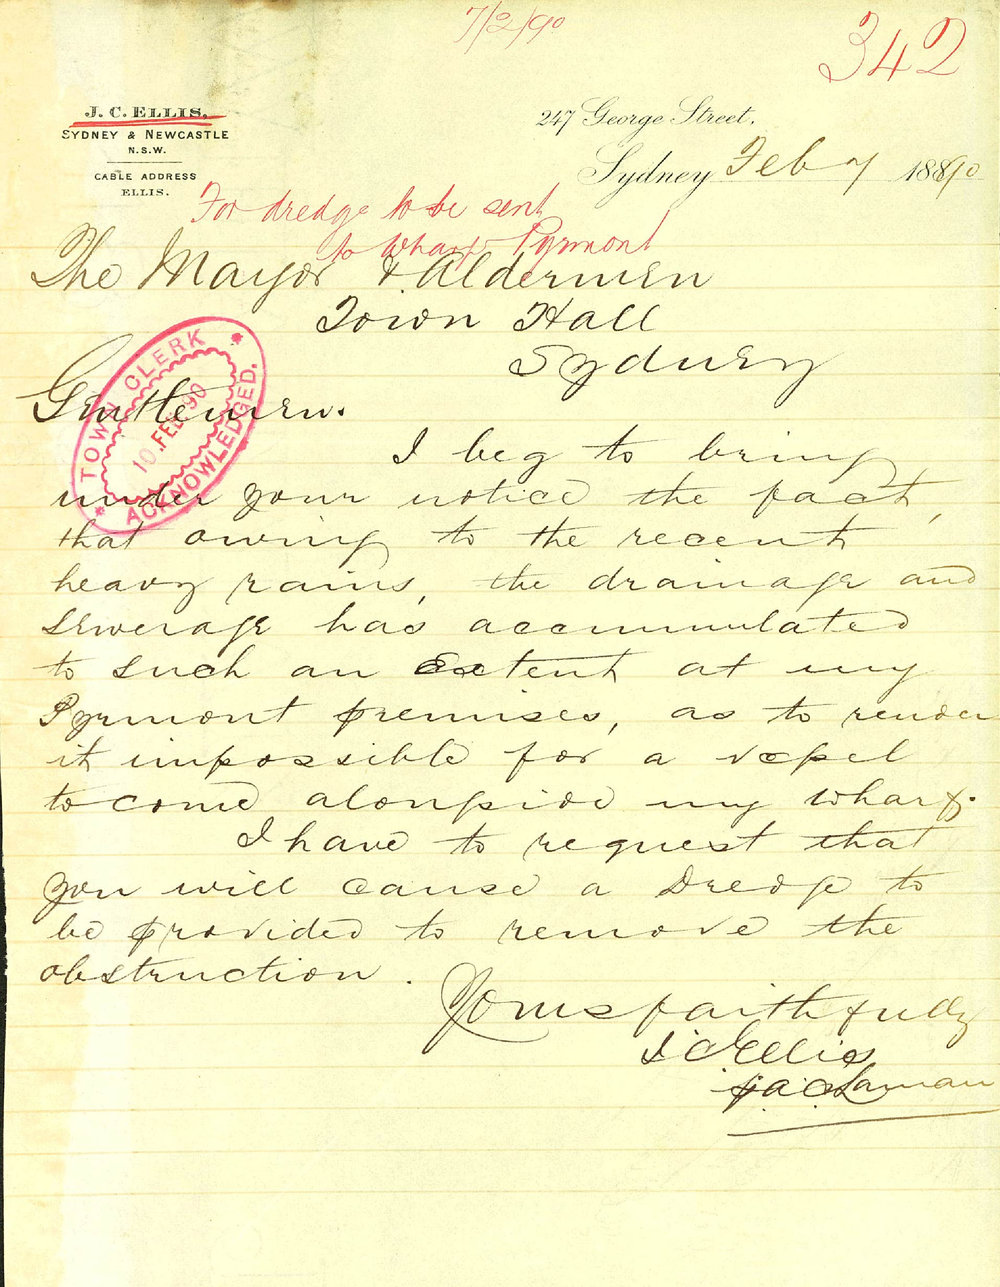 7/2/90
342
J. C. ELLIS.
SYDNEY & NEWCASTLE
N.S.W.
CABLE ADDRESS
ELLIS.
247 George Street.
Sydney Feb 7 1890
For dredge to be sent
to wharf Pyrmont
The Mayor & Aldermen
Town Hall
Sydney
TOWN CLERK
10.FEB.90
ACKNOWLEDGED.
Gentlemen.
I beg to bring
under your notice the fact,
that owing to the recent
heavy rains, the drainage and
sewerage has accumulated
to such an Extent at my
Pyrmont premises, as to render
it impossible for a vessel
to come alongside my wharf.
I have to request that
you will cause a Dredge to
be provided to remove the
obstruction.
Yours faithfully
J C Ellis